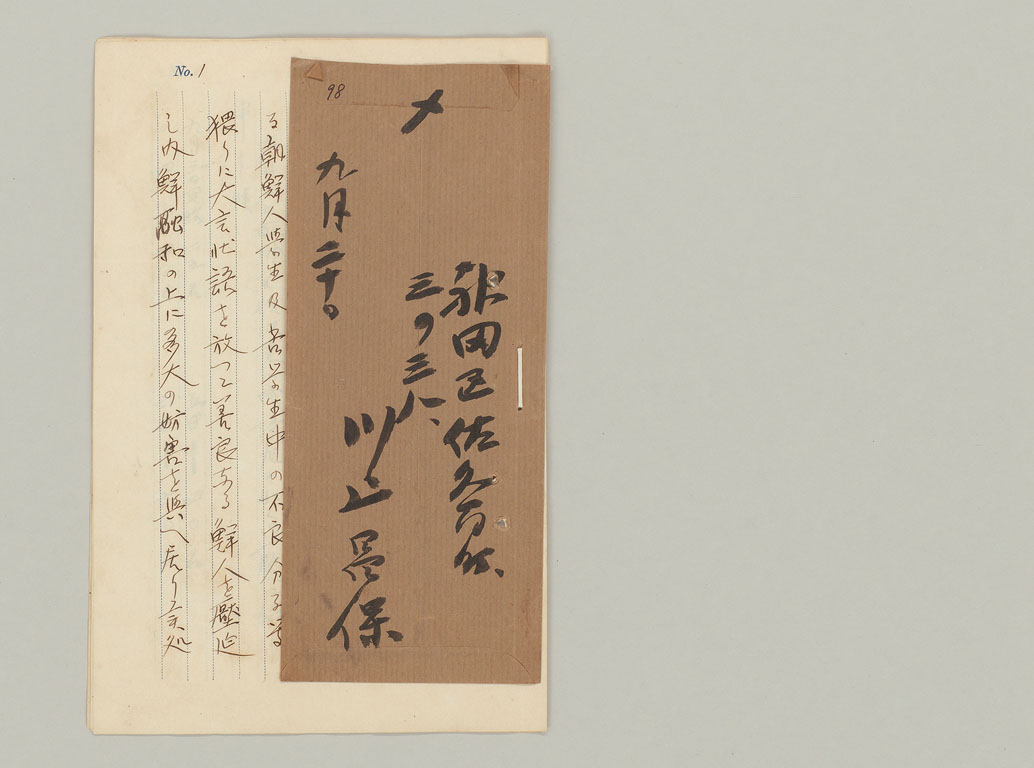 No. 1
98
〆
神田区佐久間
三ノ三八、
川上 保
九月二十日
る朝鮮人學生及苦学生中の不良分子等
猥りに大言壮語を放つて善良なる鮮人を壓迫
し内鮮融和の上に多大の妨害を與へ居り候処